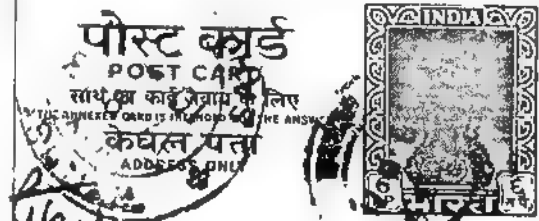 पोस्ट कार्ड
POST CARD
साथ का कार्ड जवाब के लिए
THE ANNEXED CARD IS INTENDED FOR THE ANSW
केवल पता
ADDRESS ONLY
INDIA
6
भारत